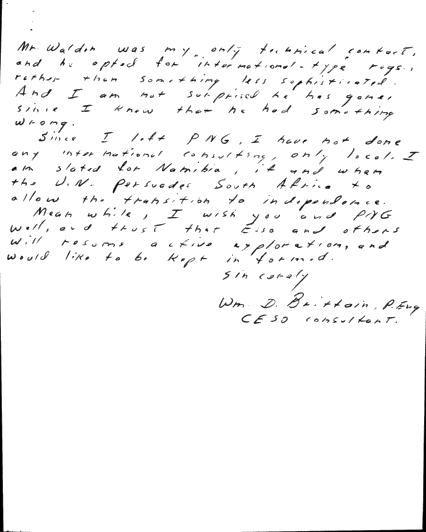 Mr. Waldon was my only technical contact,
and he opted for international-type regs.,
rather than something less sophisticated.
And I am not surprised he has gone,
since I know that he had something
wrong.
Since I left PNG, I have not done
any international consulting, only local. I
am slated for Namibia, if and when
the U.N. persuades South Africa to
allow the transition to independence.
Mean while, I wish you and PNG
well, and trust that Esso and others
will resume active exploration, and
would like to be kept informed.
Sincerely
Wm. D. Brittain, P.Eng
CESO consultant.